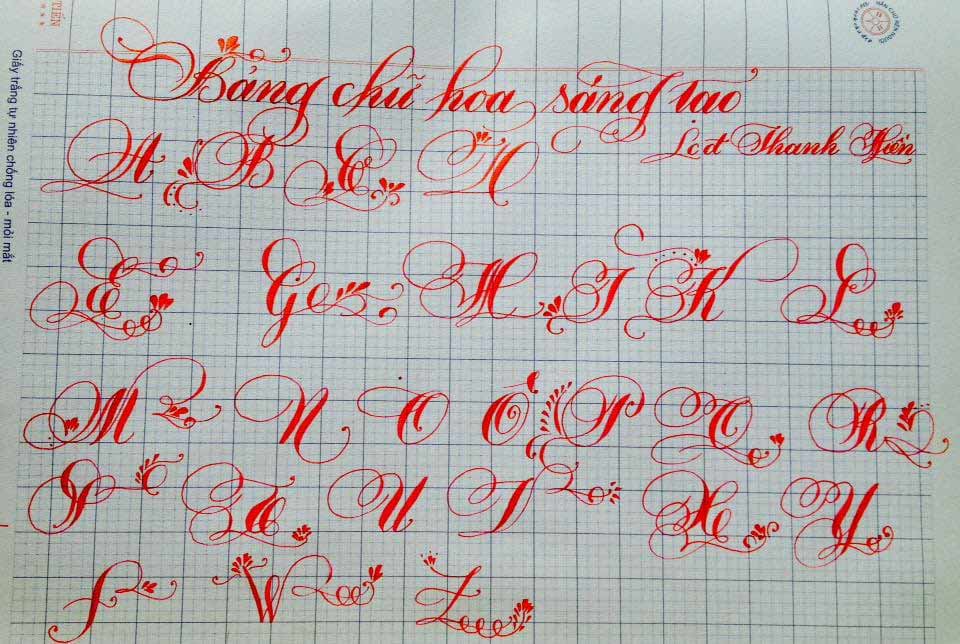 TIẾN
Giấy trắng tự nhiên chống lóa - mỏi mắt
Bảng chữ hoa sáng tạo
Lcđ Thanh Hiền
A B C N
E G H I K L
M N O Ơ P Q R
S T U I X Y
J W Z